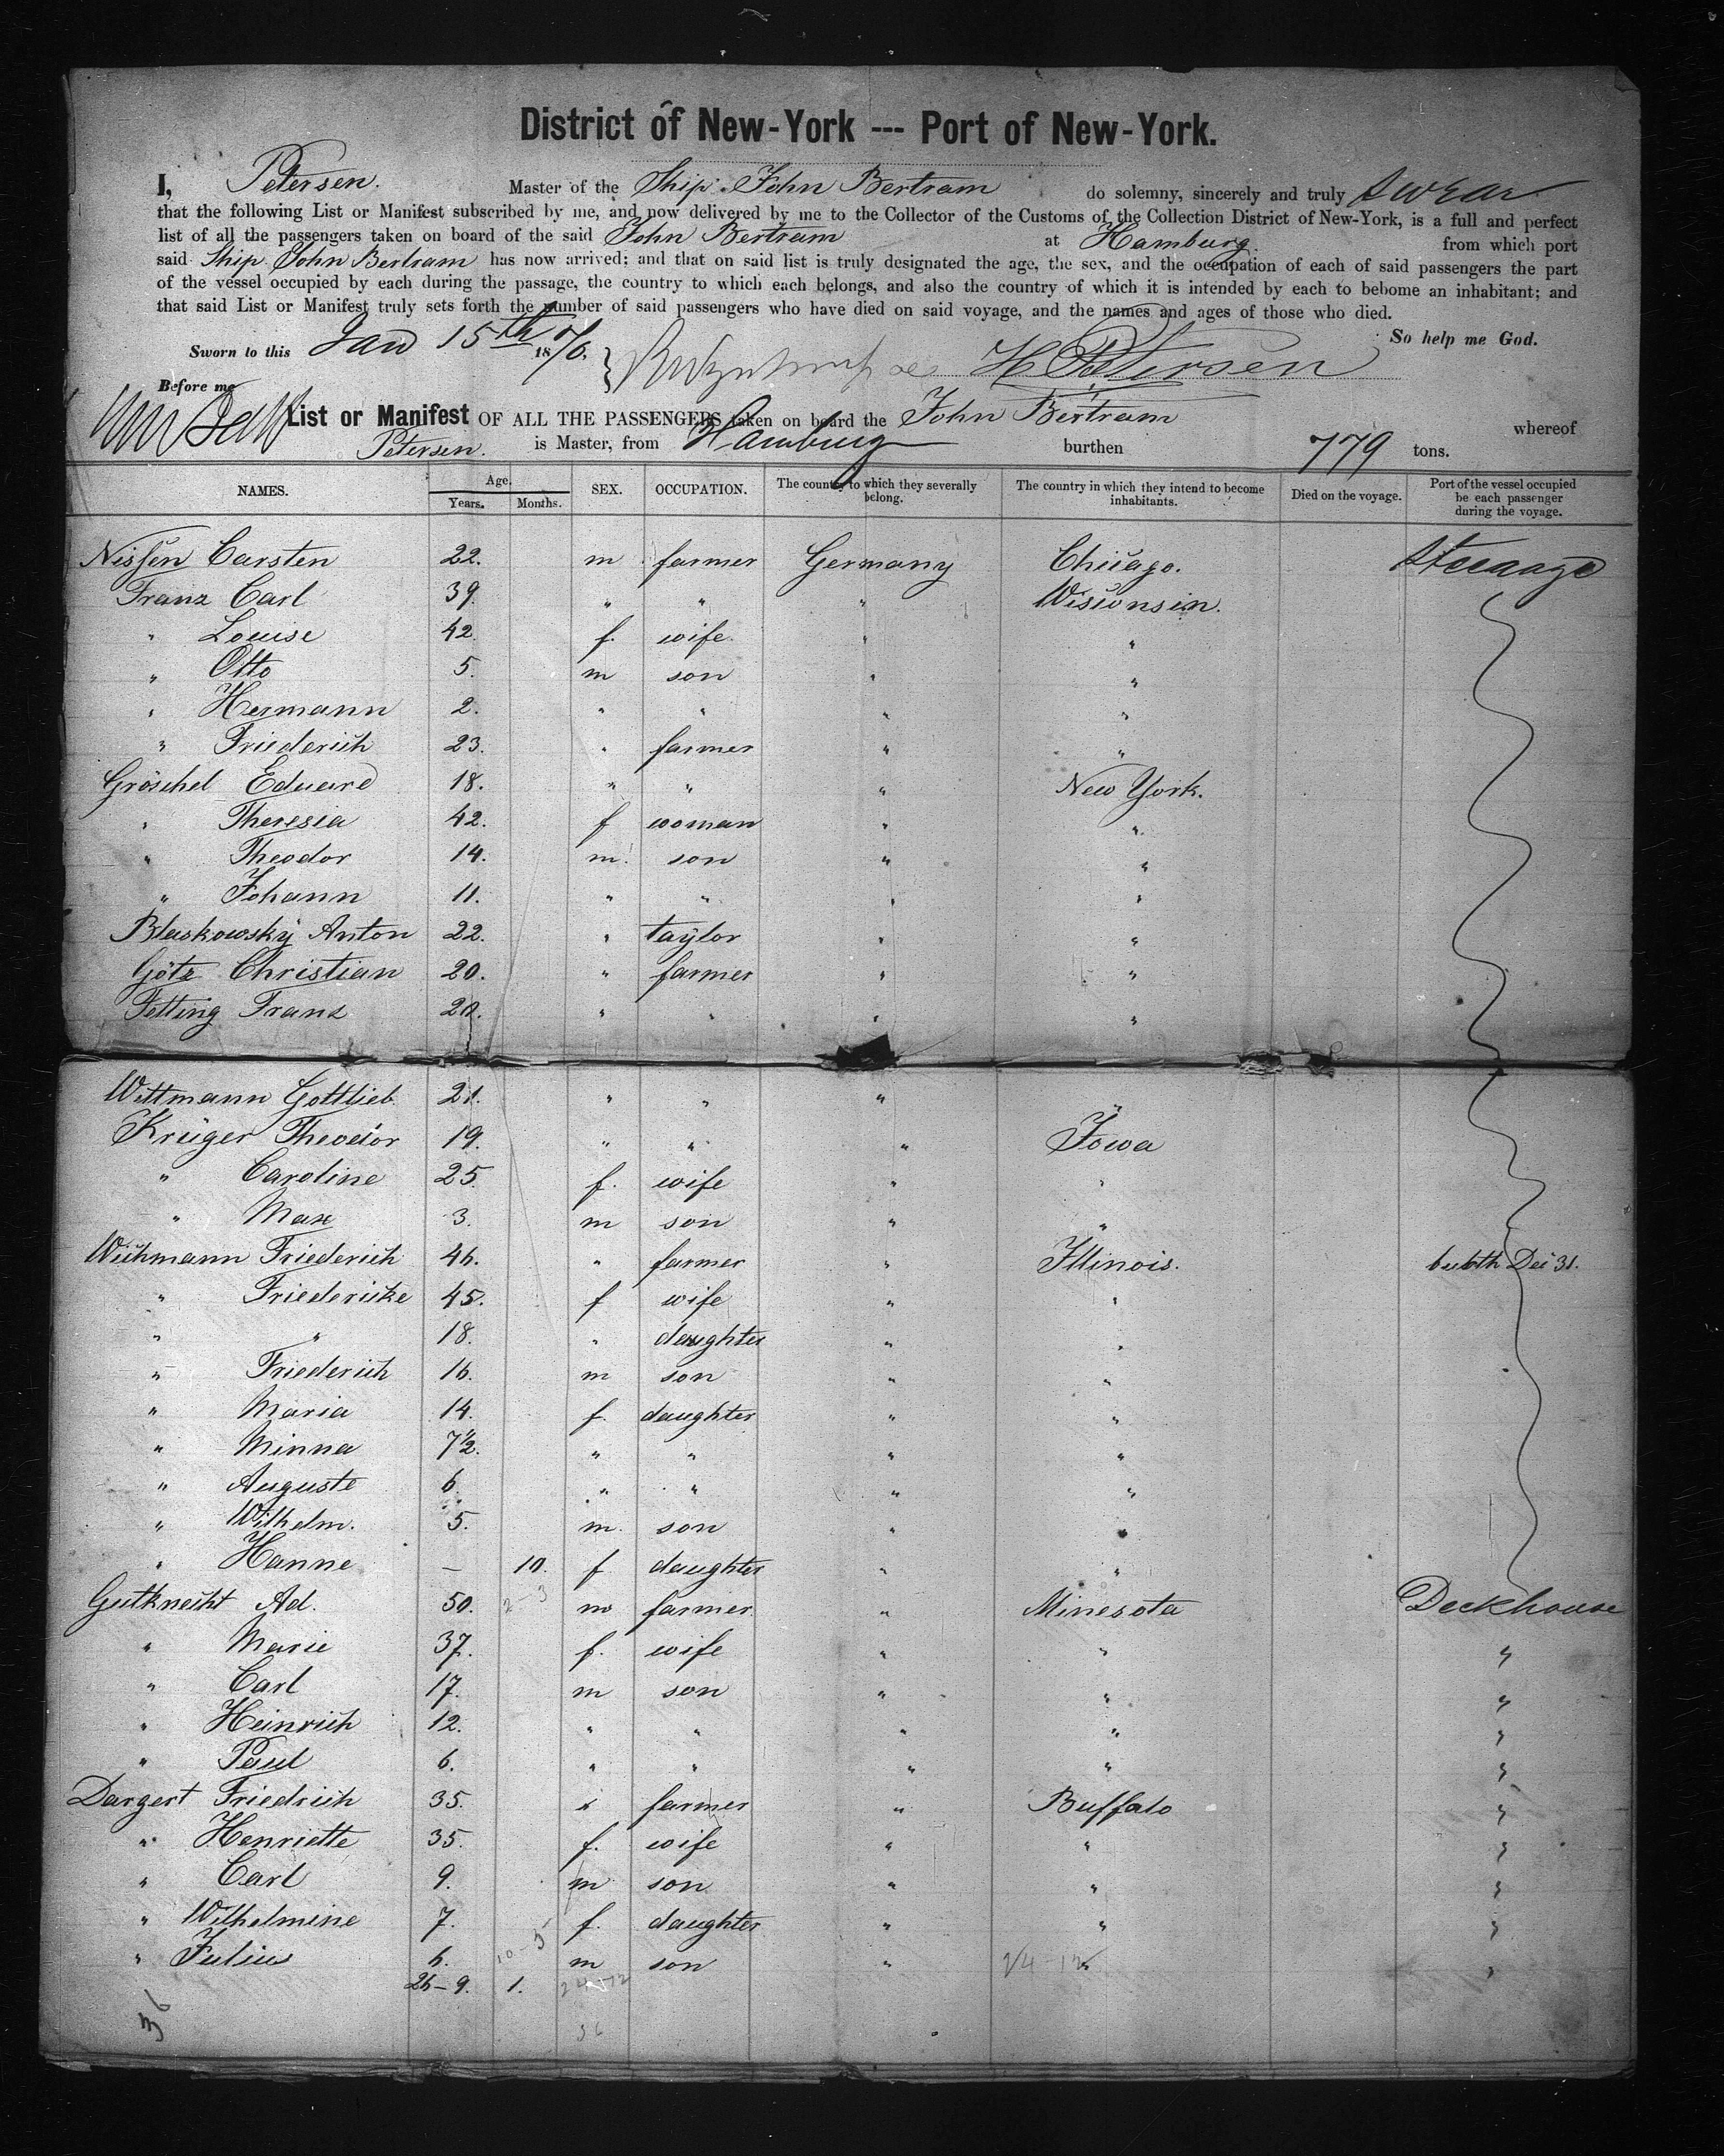 District of New-York --- Port of New-York.
I, Petersen. Master of the Ship John Bertram do solemny, sincerely and truly swear
that the following List or Manifest subscribed by me, and now delivered by me to the Collector of the Customs of the Collection District of New-York, is a full and perfect
list of all the passengers taken on board of the said John Bertram at Hamburg. from which port
said Ship John Bertram has now arrived; and that on said list is truly designated the age, the sex, and the occupation of each of said passengers the part
of the vessel occupied by each during the passage, the country to which each belongs, and also the country of which it is intended by each to bebome an inhabitant; and
that said List or Manifest truly sets forth the number of said passengers who have died on said voyage, and the names and ages of those who died.
So help me God.
Sworn to this Jan 15th 1876. H. Petersen
Before me
List or Manifest OF ALL THE PASSENGERS taken on board the John Bertram whereof
Petersen. is Master, from Hamburg burthen 779 tons.
NAMES. Age. Years. Months. SEX. OCCUPATION. The country to which they severally belong. The country in which they intend to become inhabitants. Died on the voyage. Port of the vessel occupied be each passenger during the voyage.
Nissen Carsten 22. m farmer Germany Chicago. Steerage
Franz Carl 39. " " " Wisconsin.
" Louise 42. f. wife " "
" Otto 5. m son " "
" Hermann 2. " " " "
" Friederich 23. " farmer " "
Gröschel Eduard 18. " " " New York.
" Theresia 42. f woman " "
" Theodor 14. m. son " "
" Johann 11. " " " "
Blaskowsky Anton 22. " taylor " "
Götz Christian 20. " farmer " "
Fetting Franz 20. " " " "
Wittmann Gottlieb. 21. " " " "
Krüger Theodor 19. " " " Iowa
" Caroline 25. f. wife " "
" Max 3. m son " "
Wichmann Friederich 46. " farmer " Illinois. Dec 31.
" Friedericke 45. f wife " "
" " 18. " daughter " "
" Friederich 16. m son " "
" Maria 14. f. daughter " "
" Minna 7½. " " " "
" Auguste 6. " " " "
" Wilhelm. 5. m. son " "
" Hanne — 10. f daughter " "
Gutknecht Ad. 50. 2-3 m farmer " Minesota Deckhouse
" Marie 37. f. wife " " "
" Carl 17. m son " " "
" Heinrich 12. " " " " "
" Paul 6. " " " " "
Dargert Friedrich 35. " farmer " Buffalo "
" Henriette 35. f. wife " " "
" Carl 9. m son " " "
" Wilhelmine 7. f. daughter " " "
" Julius 6. 10-5 m son " 24-12 "
26-9. 1. 24-12
36 36